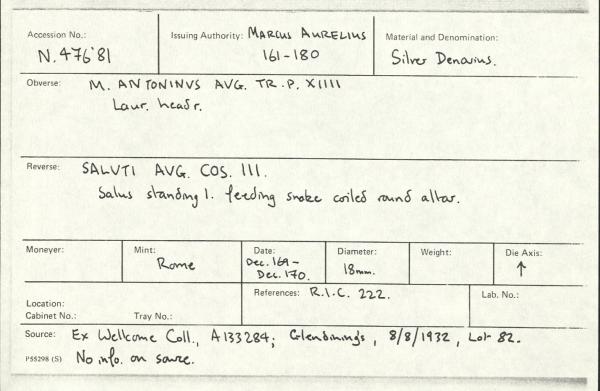 Accession No.: N.476'81
Issuing Authority: MARCUS AURELIUS
161-180
Material and Denomination:
Silver Denarius.
Obverse: M. ANTONINVS AVG. TR.P. XIIII
Laur. head r.
Reverse: SALVTI AVG. COS. III.
Salus standing l. feeding snake coiled round altar.
Moneyer:
Mint:
Rome
Date:
Dec. 169-
Dec. 170.
Diameter:
18mm.
Weight:
Die Axis:
↑
Location:
Cabinet No.: Tray No.:
References: R.I.C. 222.
Lab. No.:
Source: Ex Wellcome Coll., A133284; Glendining's, 8/8/1932, Lot 82.
P55298 (S) No info. on source.